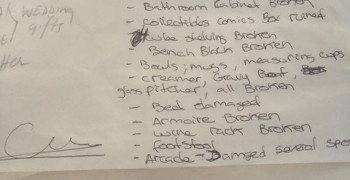 WEDDING
gifts
- Bathroom Cabinet Broken
- collectibles comics Box ruined
shelving Broken
Bench Black Broken
- Bowls; mugs, measuring cups
- creamer, Gravy Boat,
glass pitcher, all Broken
- Beak damaged
- Armoire Broken
- wine rack Broken
- footstool
- Arcade - Damged several spo